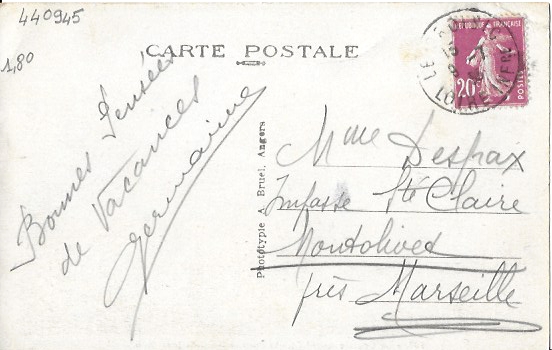 440945
1,80
CARTE POSTALE
Bonnes Pensées
de Vacances
Germaine
Phototypie A. Bruel, Angers
RÉPUBLIQUE FRANÇAISE
20c
POSTES
LOIRE INFRE
Mme Despax
Impasse Ste Claire
Montolivet
près Marseille